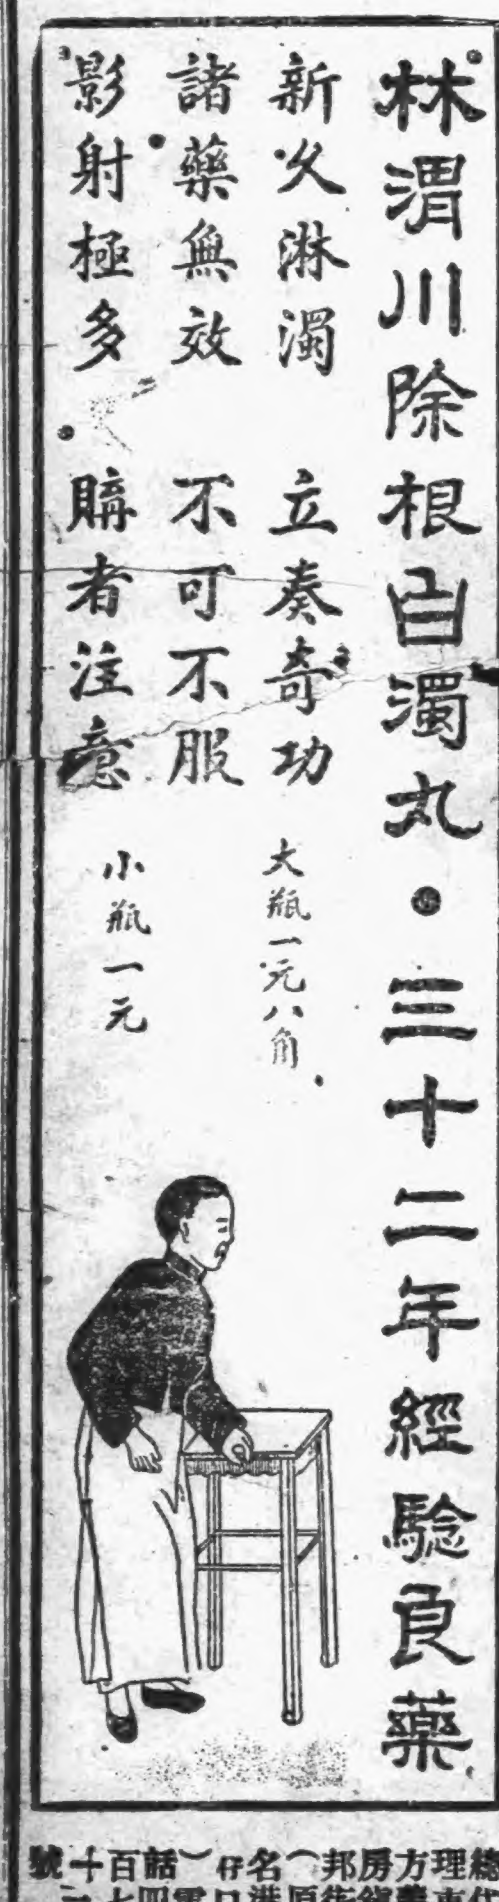 林渭川除根白濁丸●三十二年經驗良藥
新久淋濁 立奏奇功
諸藥無效 不可不服
影射極多 購者注意
大瓶一元八角
小瓶一元
總理方房邦(名仔)話百十號